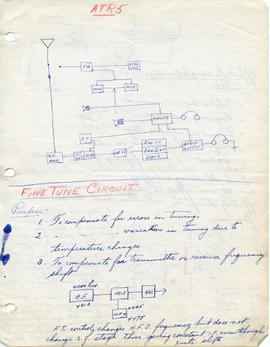 ATR5
P.A.
F.T.
REMOTE
FINE TUNE CIRCUIT
Purpose:
1. To compensate for errors in tuning.
2. variations in tuning due to
temperature changes.
3. To compensate for transmitter or receiver frequency
shift
R.F.
MIX
465
4010
H.F.O
4475
F.T. control changes H.F.O. frequency but does not
change r.f. stage thus giving constant I.F. even though
xmtr. shifts